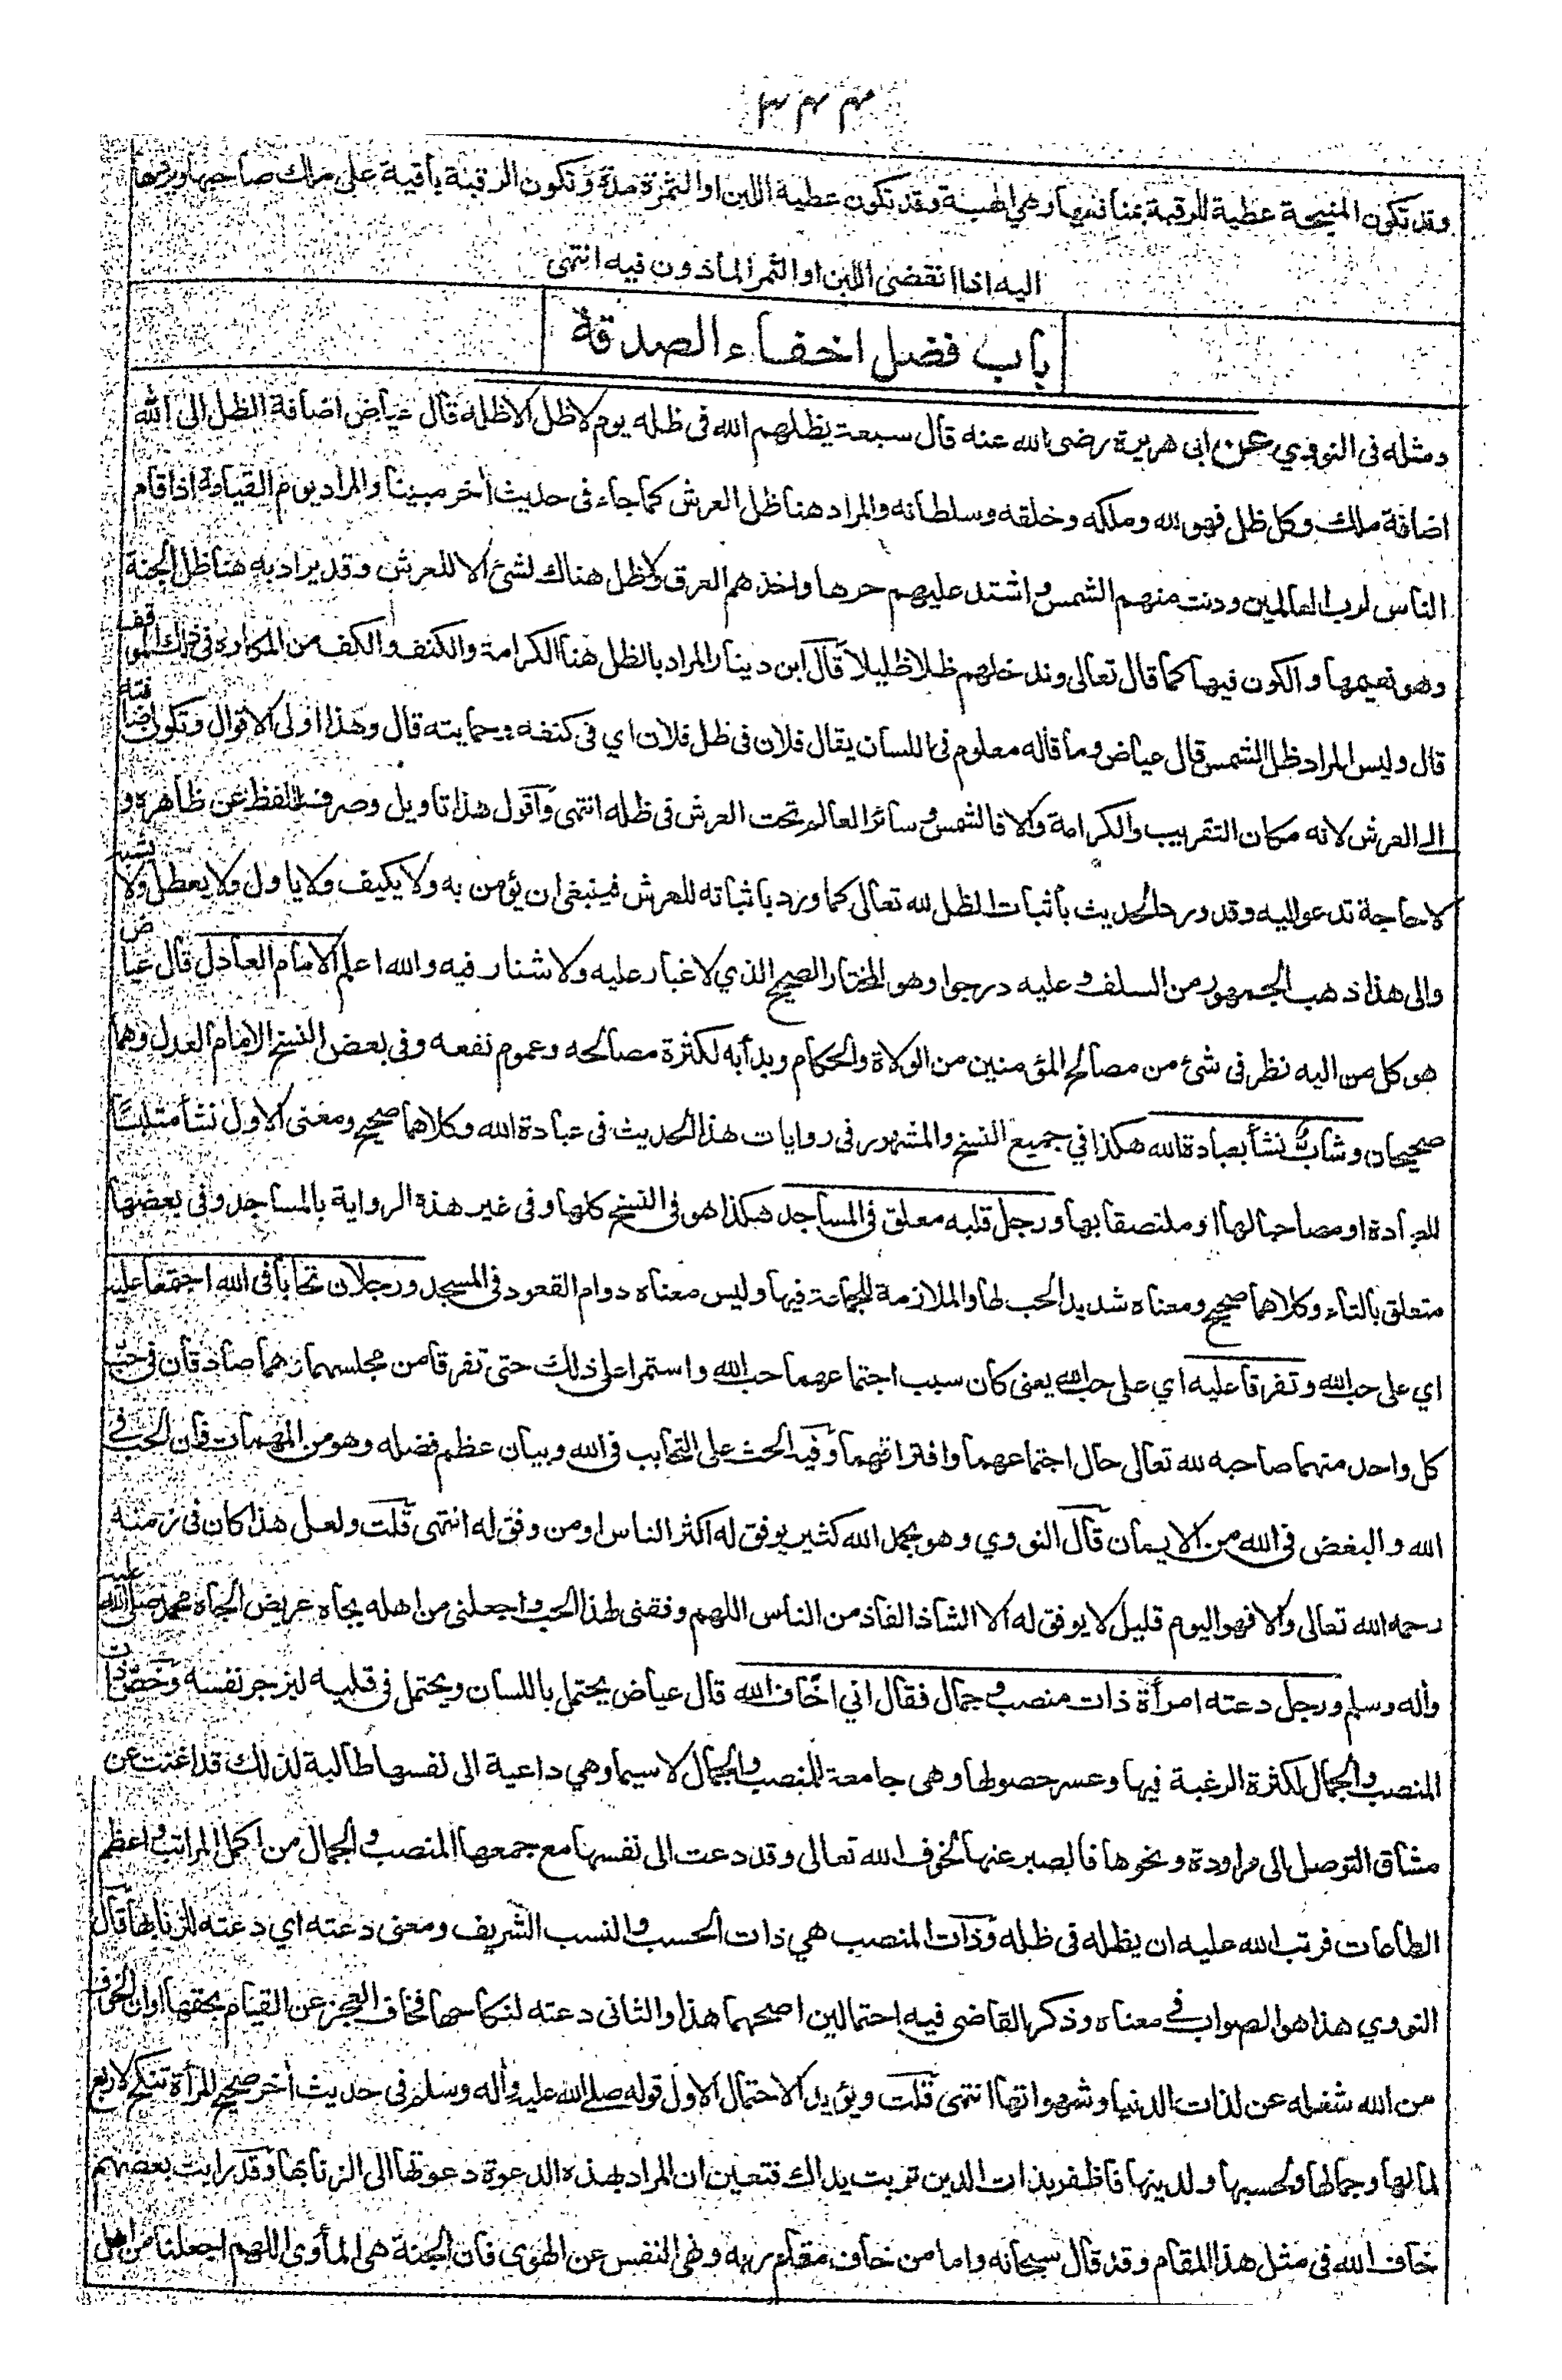 ٣٤٣
وقد تكون المنيحة عطية للرقبة بمنافعها وهي الهبة وقد تكون عطية اللبن او الثمرة مدة وتكون الرقبة باقية على ملك صاحبها ويردها
اليه اذا انقضى اللبن او الثمر الماذون فيه انتهى
باب فضل اخفاء الصدقة
ومثله فى النووي عن ابى هريرة رضى الله عنه قال سبعة يظلهم الله فى ظله يوم لاظل الاظله قال عياض اضافة الظل الى الله
اضافة ملك وكل ظل فهو لله وملكه وخلقه وسلطانه والمراد هنا ظل العرش كما جاء فى حديث أخر مبينا والمراد يوم القيامة اذا قام
الناس لرب العالمين ودنت منهم الشمس واشتد عليهم حرها واخذهم العرق ولاظل هناك لشئ الا للعرش وقد يراد به هنا ظل الجنة
وهو نعيمها والكون فيها كما قال تعالى وندخلهم ظلا ظليلا قال ابن دينار المراد بالظل هنا الكرامة والكنف والكف من المكاره فى ذلك الموقف
قال وليس المراد ظل الشمس قال عياض وما قاله معلوم فى اللسان يقال فلان فى ظل فلان اي فى كنفه وحمايته قال وهذا اولى الاقوال وتكون اضافته
الى العرش لانه مكان التقريب والكرامة والا فالشمس وسائر العالم تحت العرش فى ظله انتهى واقول هذا تاويل وصرف اللفظ عن ظاهره و
لاحاجة تدعو اليه وقد ورد الحديث باثبات الظل لله تعالى كما ورد باثباته للعرش فينبغى ان يؤمن به ولا يكيف ولا ياول ولا يعطل ولا يشبه
والى هذا ذهب الجمهور من السلف وعليه درجوا وهو المختار الصحيح الذي لا غبار عليه ولا شنار فيه والله اعلم الامام العادل قال عياض
هو كل من اليه نظر فى شئ من مصالح المؤمنين من الولاة والحكام وبدأ به لكثرة مصالحه وعموم نفعه وفى بعض النسخ الامام العدل وهما
صحيحان وشاب نشأ بعبادة الله هكذا في جميع النسخ والمشهور فى روايات هذا الحديث فى عبادة الله وكلاهما صحيح ومعنى الاول نشأ متلبسًا
للعبادة او مصاحبا لها او ملتصقا بها ورجل قلبه معلق فى المساجد هكذا هو فى النسخ كلها وفى غير هذه الرواية بالمساجد وفى بعضها
متعلق بالتاء وكلاهما صحيح ومعناه شديد الحب لها والملازمة للجماعة فيها وليس معناه دوام القعود فى المسجد ورجلان تحابا فى الله اجتمعا عليه
اي على حب الله وتفرقا عليه اي على حب الله يعنى كان سبب اجتماعهما حب الله واستمرا على ذلك حتى تفرقا من مجلسهما وهما صادقان فى حب
كل واحد منهما صاحبه لله تعالى حال اجتماعهما وافتراقهما وفيه الحث على التحابب فى الله وبيان عظم فضله وهو من المهمات فان الحب في
الله والبغض فى الله من الايمان قال النووي وهو بحمد الله كثير يوفق له اكثر الناس او من وفق له انتهى قلت ولعل هذا كان فى زمنه
رحمه الله تعالى والا فهو اليوم قليل لا يوفق له الا الشاذ الفاذ من الناس اللهم وفقنى لهذا الحب واجعلنى من اهله بجاه عريض الجاه محمد صلى الله عليه
وأله وسلم ورجل دعته امرأة ذات منصب وجمال فقال اني اخاف الله قال عياض يحتمل باللسان ويحتمل فى قلبه ليزجر نفسه وخص ذات
المنصب والجمال لكثرة الرغبة فيها وعسر حصولها وهى جامعة للمنصب والجمال لا سيما وهي داعية الى نفسها طالبة لذلك قد اغنت عن
مشاق التوصل الى مراودة ونحوها فالصبر عنها لخوف الله تعالى وقد دعت الى نفسها مع جمعها المنصب والجمال من اكمل المراتب واعظم
الطاعات فرتب الله عليه ان يظله فى ظله وذات المنصب هي ذات الحسب والنسب الشريف ومعنى دعته اي دعته للزنا بها قال
النووي هذا هو الصواب في معناه وذكر القاضى فيه احتمالين اصحهما هذا والثانى دعته لنكاحها فخاف العجز عن القيام بحقها او ان الخوف
من الله شغله عن لذات الدنيا وشهواتها انتهى قلت ويؤيد الاحتمال الاول قوله صلى الله عليه وأله وسلم فى حديث أخر صحيح المرأة تنكح لاربع
لمالها وجمالها ولحسبها ولدينها فاظفر بذات الدين تربت يداك فتعين ان المراد بهذه الدعوة دعوتها الى الزنا بها وقد رايت بعضهم
خاف الله فى مثل هذا المقام وقد قال سبحانه واما من خاف مقام ربه ونهى النفس عن الهوى فان الجنة هى المأوى اللهم اجعلنا من اهل